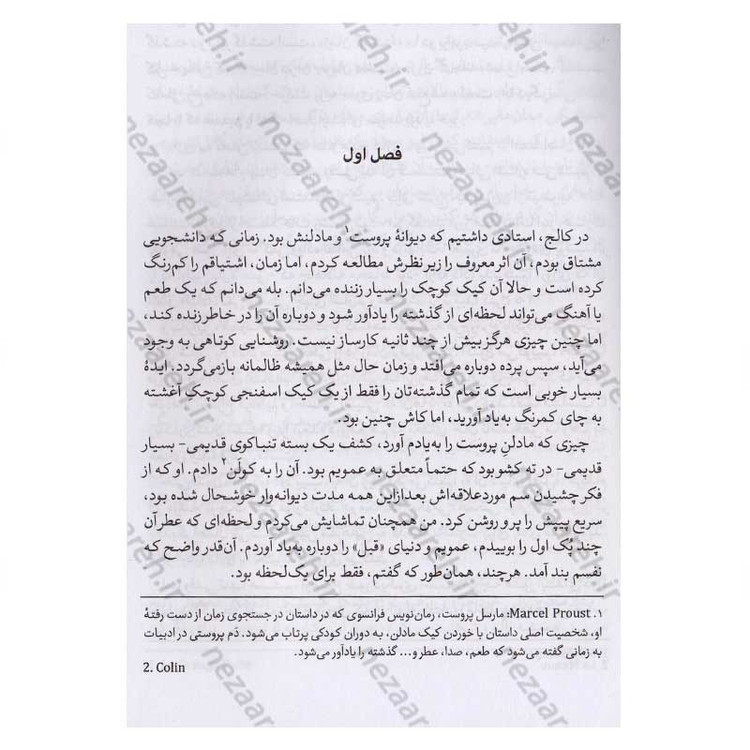 فصل اول
در کالج، استادی داشتیم که دیوانهٔ پروست۱ و مادلنش بود. زمانی که دانشجویی
مشتاق بودم، آن اثر معروف را زیر نظرش مطالعه کردم، اما زمان، اشتیاقم را کم‌رنگ
کرده است و حالا آن کیک کوچک را بسیار زننده می‌دانم. بله می‌دانم که یک طعم
یا آهنگ می‌تواند لحظه‌ای از گذشته را یادآور شود و دوباره آن را در خاطر زنده کند،
اما چنین چیزی هرگز بیش از چند ثانیه کارساز نیست. روشنایی کوتاهی به وجود
می‌آید، سپس پرده دوباره می‌افتد و زمان حال مثل همیشه ظالمانه بازمی‌گردد. ایدهٔ
بسیار خوبی است که تمام گذشته‌تان را فقط از یک کیک اسفنجی کوچکِ آغشته
به چای کمرنگ به‌یاد آورید، اما کاش چنین بود.
چیزی که مادلنِ پروست را به‌یادم آورد، کشف یک بسته تنباکوی قدیمی- بسیار
قدیمی- در ته کشو بود که حتماً متعلق به عمویم بود. آن را به کولَن۲ دادم. او که از
فکر چشیدن سم موردعلاقه‌اش بعدازاین همه مدت دیوانه‌وار خوشحال شده بود،
سریع پیپش را پر و روشن کرد. من همچنان تماشایش می‌کردم و لحظه‌ای که عطر آن
چند پُک اول را بوییدم، عمویم و دنیای «قبل» را دوباره به‌یاد آوردم. آن‌قدر واضح که
نفسم بند آمد. هرچند، همان‌طور که گفتم، فقط برای یک لحظه بود.
۱. Marcel Proust: مارسل پروست، رمان‌نویس فرانسوی که در داستان در جستجوی زمان از دست رفتهٔ
او، شخصیت اصلی داستان با خوردن کیک مادلن، به دوران کودکی پرتاب می‌شود. دَم پروستی در ادبیات
به زمانی گفته می‌شود که طعم، صدا، عطر و... گذشته را یادآور می‌شود.
2. Colin
nezaareh.ir